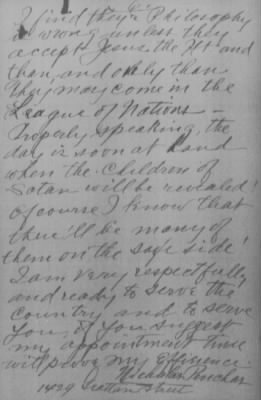 I find they'r Philosophy
is wrong unless they
accept Jesus the Xt and
than, and only than
they may come in the
League of Nations -
Properly speaking, the
day is soon at hand
when the children of
Satan will be revealed!
of course I know that
there'll be many of
them on the safe side!
I am very respectfully,
and ready to serve the
Country and to serve
You, if you suggest
my appointment time
will prove my Efficience
Nicholas
1429 street